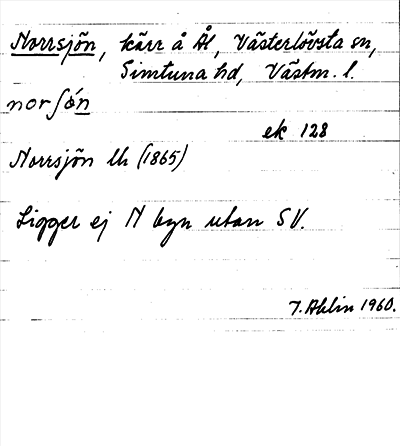 Norrsjön, kärr å Ål, Västerlövsta sn,
Simtuna hd, Västm. l.
norʃö́n
ek 128
Norrsjön lh (1865)
Ligger ej N byn utan SV.
T. Ahlin 1960.